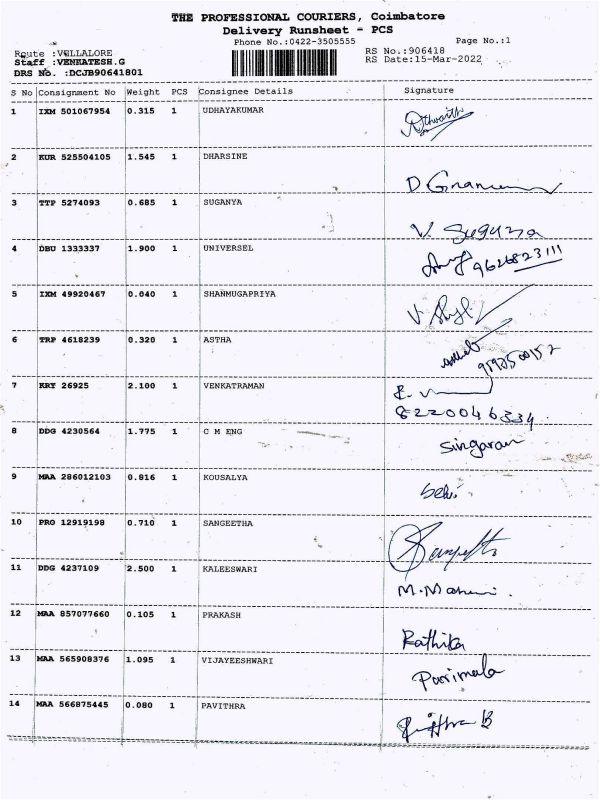 THE PROFESSIONAL COURIERS, Coimbatore
Delivery Runsheet - PCS
Phone No.:0422-3505555 Page No.:1
Route :VELLALORE RS No.:906418
Staff :VENKATESH.G RS Date:15-Mar-2022
DRS No. :DCJB90641801
S No Consignment No Weight PCS Consignee Details Signature
1 IXM 501067954 0.315 1 UDHAYAKUMAR
2 KUR 525504105 1.545 1 DHARSINE
D
3 TTP 5274093 0.685 1 SUGANYA
V. Suguna
4 DBU 1333337 1.900 1 UNIVERSEL
9626823111
5 IXM 49920467 0.040 1 SHANMUGAPRIYA
V
6 TRP 4618239 0.320 1 ASTHA
7 KRY 26925 2.100 1 VENKATRAMAN
8220046334
8 DDG 4230564 1.775 1 C M ENG
Singaran
9 MAA 286012103 0.816 1 KOUSALYA
Selvi
10 PRO 12919198 0.710 1 SANGEETHA
11 DDG 4237109 2.500 1 KALEESWARI
M.
12 MAA 857077660 0.105 1 PRAKASH
Rathika
13 MAA 565908376 1.095 1 VIJAYEESHWARI
Parimala
14 MAA 566875445 0.080 1 PAVITHRA
B